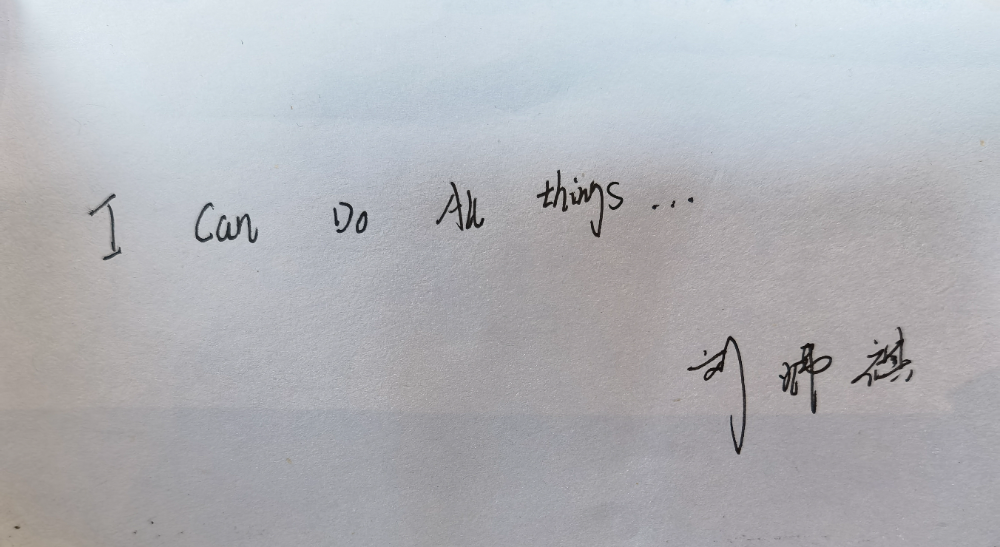 I Can Do All things...
刘 师 祺